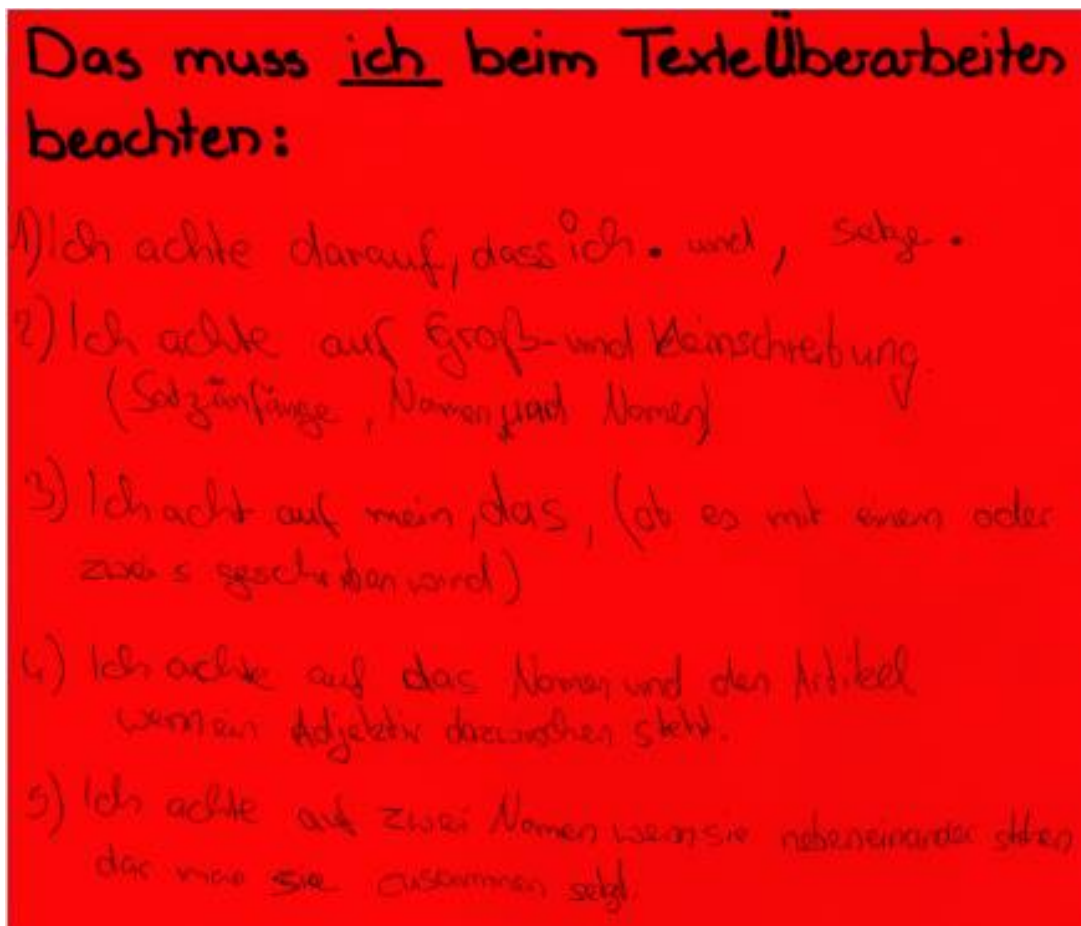 Das muss ich beim Texte Überarbeiten
beachten:
1) Ich achte darauf, dass ich . und , setze .
2) Ich achte auf Groß- und Kleinschreibung.
(Satzanfänge, Nomen, und Namen)
3) Ich acht auf mein, das, (ob es mit einen oder
zwei s geschrieben wird)
4) Ich achte auf das Nomen und den Artikel
wenn ein Adjektiv dazwischen steht.
5) Ich achte auf zwei Nomen wenn sie nebeneinander stehen
das man sie zusammen setzt.